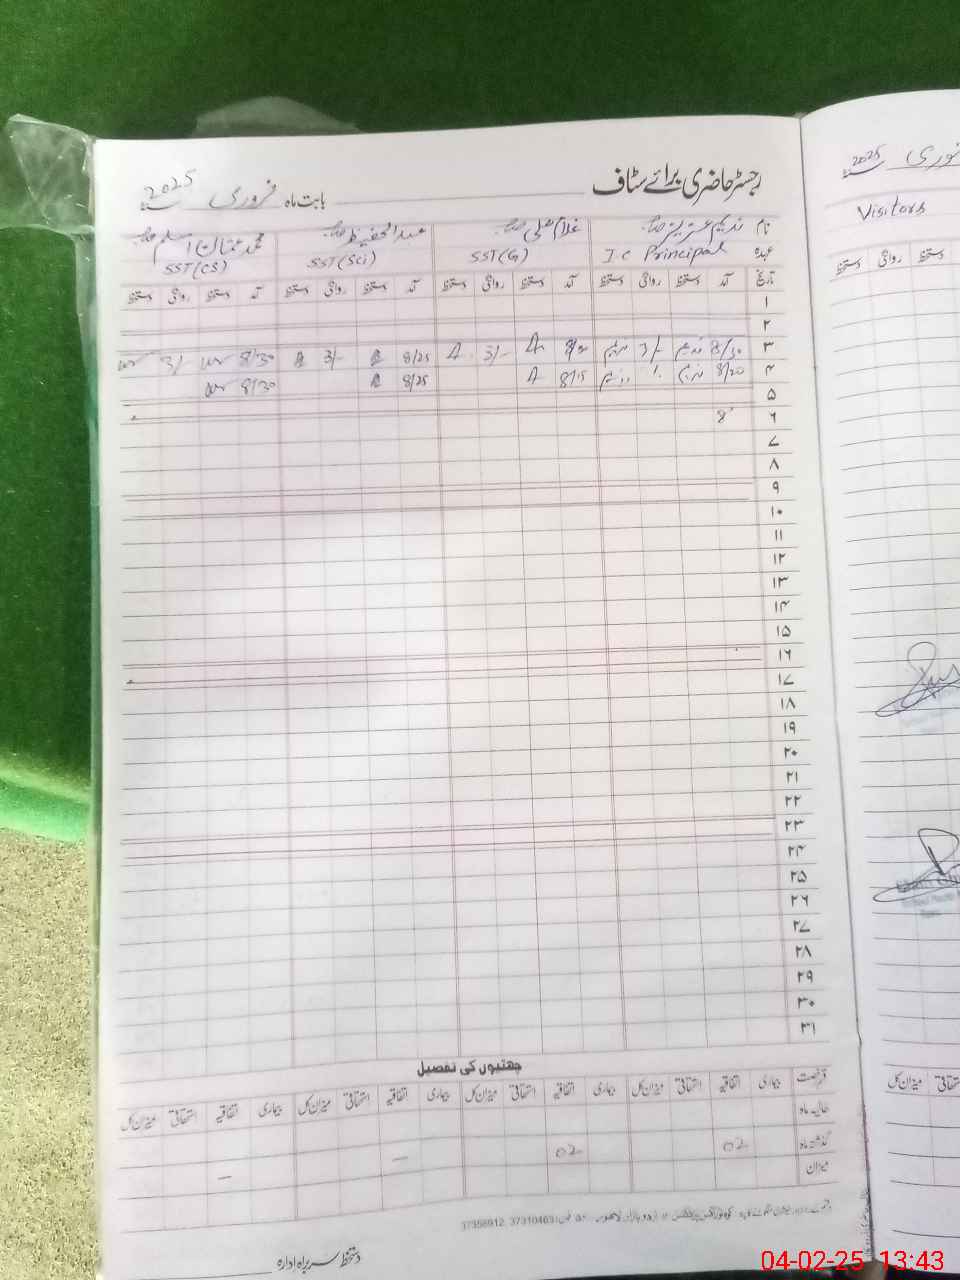 رجسٹر حاضری برائے سٹاف
بابت ماہ فروری 2025
نام ندیم عزیز صاحب غلام علی صاحب عبدالحفیظ صاحب محمد عثمان اسلم صاحب
عہدہ I.C Principal SST(G) SST(Sci) SST(CS)
تاریخ آمد دستخط روانگی دستخط آمد دستخط روانگی دستخط آمد دستخط روانگی دستخط آمد دستخط روانگی دستخط
۱
۲
۳ 8/30 3/- 8/20 3/- 8/25 3/- 8/30 3/-
۴ 8/20 8/15 8/25 8/30
۵
۶ 8
۷
۸
۹
۱۰
۱۱
۱۲
۱۳
۱۴
۱۵
۱۶
۱۷
۱۸
۱۹
۲۰
۲۱
۲۲
۲۳
۲۴
۲۵
۲۶
۲۷
۲۸
۲۹
۳۰
۳۱
چھٹیوں کی تفصیل
رخصت بیماری اتفاقیہ استحقاقی میزان کل بیماری اتفاقیہ استحقاقی میزان کل بیماری اتفاقیہ استحقاقی میزان کل بیماری اتفاقیہ استحقاقی میزان کل
حالیہ ماہ
گذشتہ ماہ 02 02 –
میزان –
اردو بازار لاہور 37310463, 37356912
دستخط سربراہ ادارہ
فروری 2025
Visitors
دستخط روانگی دستخط
میزان کل استحقاقی
04-02-25 13:43